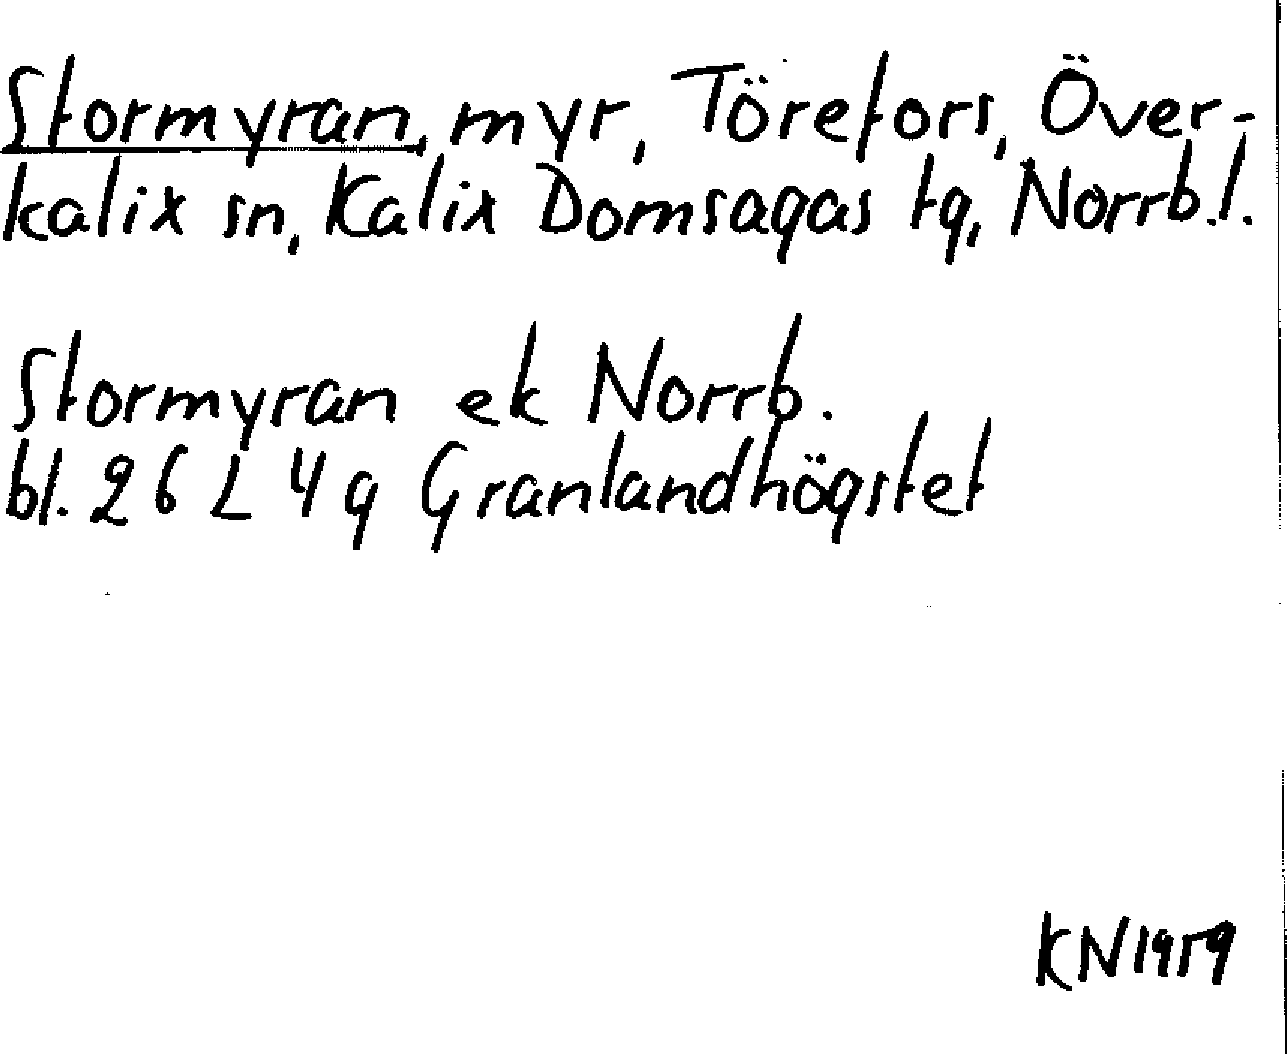 Stormyran, myr, Törefors, Över-
kalix sn, Kalix Domsagas tg, Norrb.l.
Stormyran ek Norrb.
bl. 26 L 4 g Granlandhögstet
KN 1959